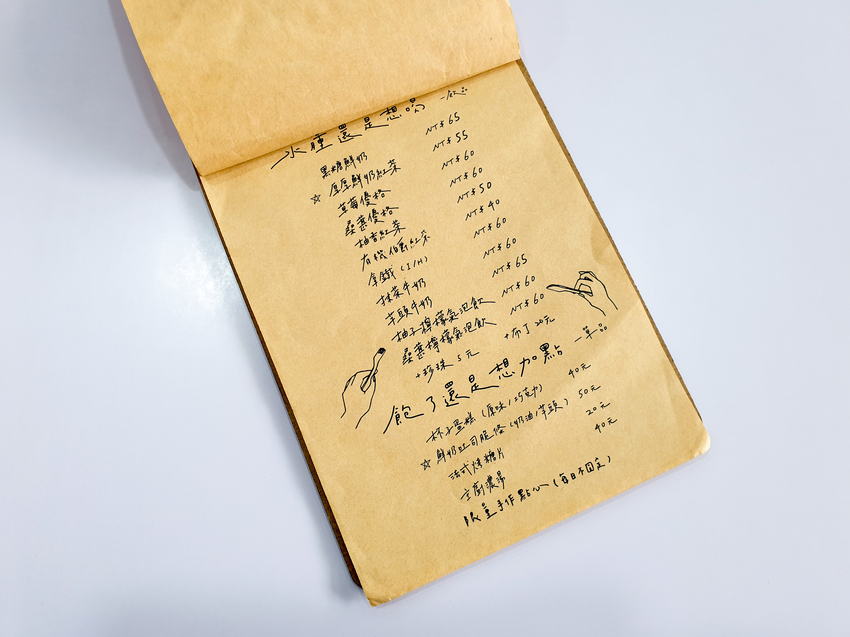 水腫還是想喝 —飲品
黑糖鮮奶 NT$65
☆ 厚厚鮮奶紅茶 NT$55
草莓優格 NT$60
桑葚優格 NT$60
柚香紅茶 NT$50
有機伯爵紅茶 NT$40
拿鐵 (I/H) NT$60
抹茶牛奶 NT$60
芋頭牛奶 NT$65
柚子檸檬氣泡飲 NT$60
桑葚檸檬氣泡飲 NT$60
+珍珠 5元 +布丁 20元
飽了還是想加點 —單品
杯子蛋糕 (原味/巧克力) 40元
☆ 鮮奶吐司脆條 (奶油/芋頭) 50元
法式烤糖片 20元
主廚濃湯 40元
限量手作點心 (每日不固定)